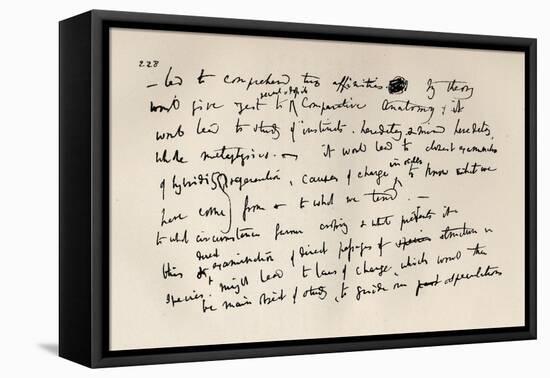 228
— led to comprehend true affinities My theory
would give zest to recent & fossil Comparative Anatomy, & it
would lead to study of instincts. heredity & mind heredity,
whole metaphysics. — it would lead to closest examination
of hybridity regeneration, causes of change in order to know what we
have come from & to what we tend. —
to what circumstances favour crossing & what prevents it
this & examination of direct passages of species structure in
species. might lead to laws of change, which would then
be main object of study, to guide our past speculations